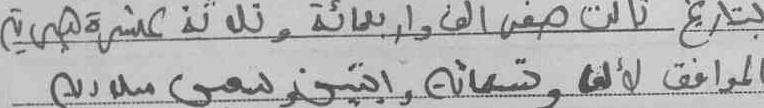 بتاريخ ثالث صفر الف واربعمائة وثلاثة عشرة هجرية
الموافق لألف وتسعمائة واثنين وتسعين ميلادية